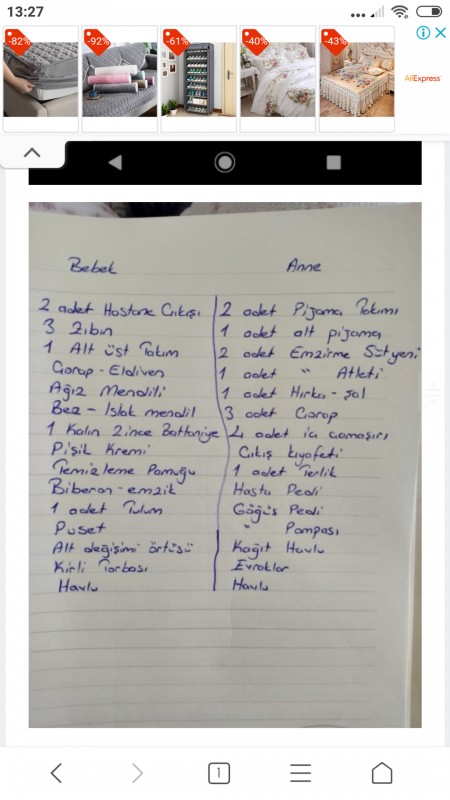 13:27
-82%
-92%
-61%
-40%
-43%
AliExpress
Bebek
2 adet Hastane Çıkışı
3 Zıbın
1 Alt üst Takım
Çorap - Eldiven
Ağız Mendili
Bez - Islak mendil
1 Kalın 2 ince Battaniye
Pişik Kremi
Temizleme Pamuğu
Biberon - emzik
1 adet Tulum
Puset
Alt değişimi örtüsü
Kirli Torbası
Havlu
Anne
2 adet Pijama Takımı
1 adet alt pijama
2 adet Emzirme Sütyeni
1 adet " Atleti
1 adet Hırka - şal
3 adet Çorap
4 adet iç çamaşırı
Çıkış kıyafeti
1 adet Terlik
Hasta Pedi
Göğüs Pedi
" Pompası
Kağıt Havlu
Evraklar
Havlu
1